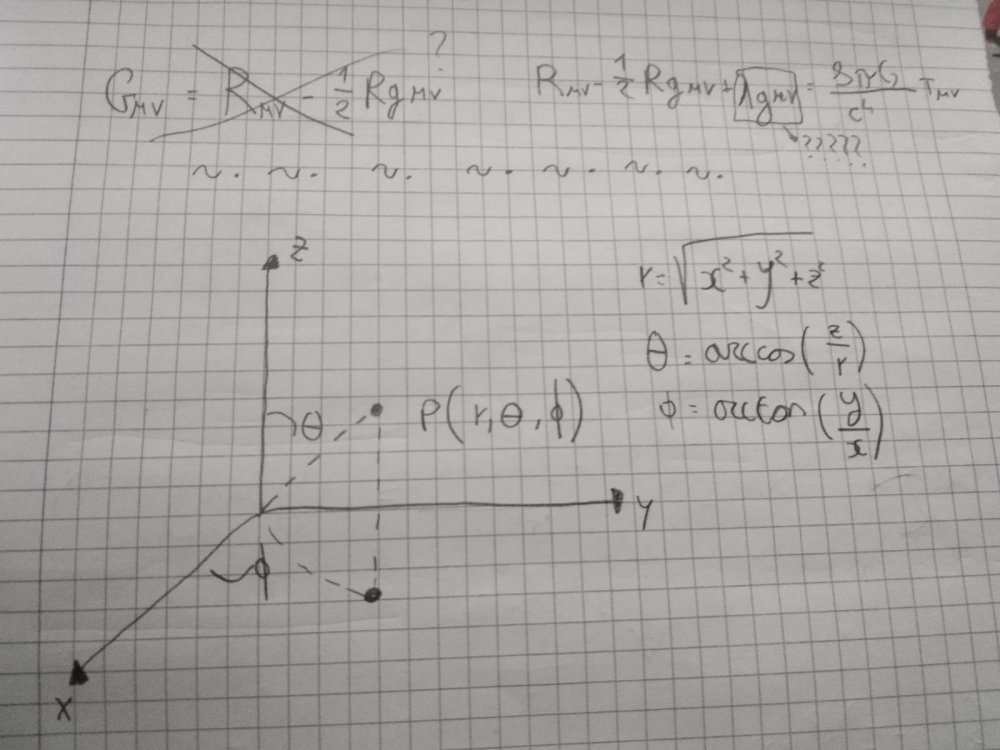 ?
Gμν = Rμν - 1/2 Rgμν
Rμν - 1/2 Rgμν + λgμν = 8πG/c⁴ Tμν
?????
~. ~. ~. ~. ~. ~. ~.
z
r = √(x² + y² + z²)
θ = arccos(z/r)
θ P(r, θ, ϕ)
ϕ = arctan(y/x)
y
ϕ
x